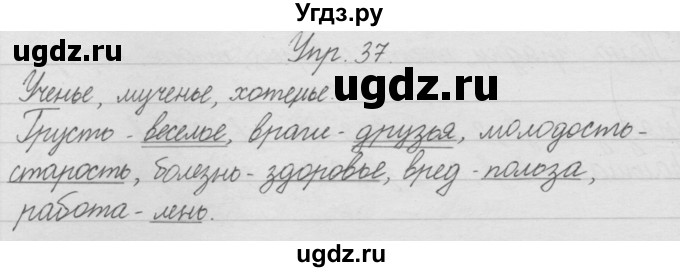 Угдз.ру
Упр. 37.
Ученье, мученье, хотенье.
Грусть - веселье, враги - друзья, молодость -
старость, болезнь - здоровье, вред - польза,
работа - лень.
uгдз.ru
uгдз.ru
uгдз.ru
uгдз.ru